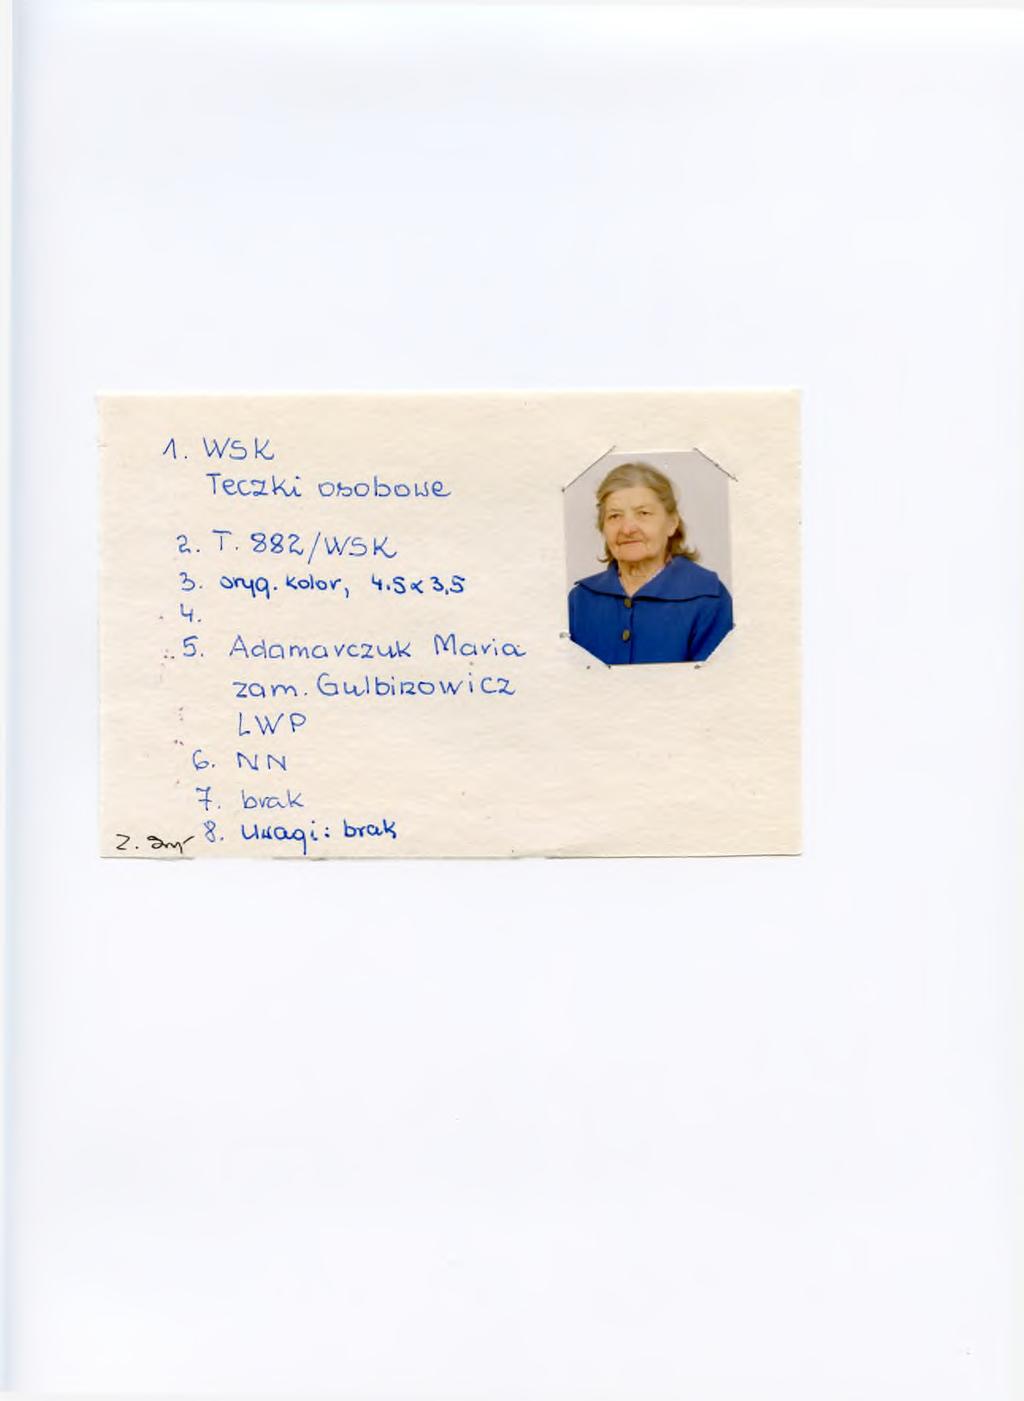 1. WSK
Teczki osobowe
2. T. 882/WSK
3. oryg. kolor, 4.5x3,5
4.
5. Adamarczuk Maria
zam. Gulbinowicz
LWP
6. NN
7. brak
8. Uwagi: brak
Z.